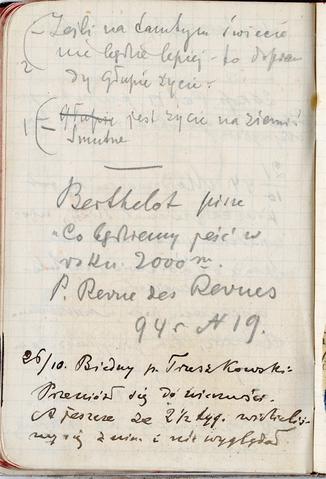 – Jeśli na tamtym świecie
2 nie będzie lepiej – to dopraw
dy głupie życie.
1 – Głupie jest życie na ziemi
Smutne
Berthelot pisze
"Co będziemy jeść w
roku 2000m.
P. Revue des Revues
94 r N 19.
26/10. Biedny p. Truszkowski.
Przeniósł się do wieczności.
A jeszcze ze 2 1/2 tyg. widzieliś-
my się z nim i nie wyglądał